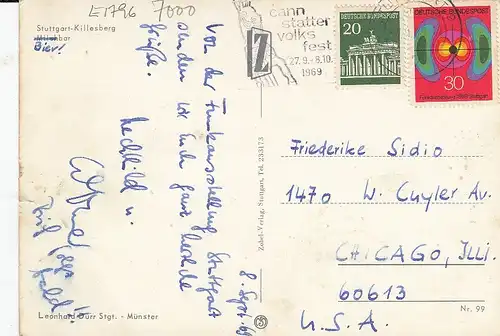 E1796 7000
Stuttgart-Killesberg
Milchbar
Bier!
cann
statter
volks
fest
27.9.-8.10.
1969
Z
DEUTSCHE BUNDESPOST
20
DEUTSCHE BUNDESPOST
30
Funkausstellung 1969 Stuttgart
8. Sept. 69
Von der Funkausstellung Stuttgart
senden wir Euch ganz herzliche
Grüße.
Mechthild u.
Zobel-Verlag, Stuttgart, Tel. 233173
Friederike Sidio
1470 W. Cuyler Av.
CHICAGO, Illi.
60613
U.S.A.
Leonhard Dürr Stgt. - Münster
Nr. 99